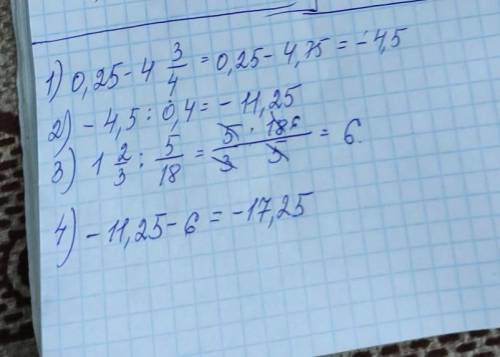 1) 0,25 - 4 3/4 = 0,25 - 4,75 = -4,5
2) - 4,5 : 0,4 = - 11,25
3) 1 2/3 : 5/18 = 5 · 18 6 / 3 5 = 6
4) - 11,25 - 6 = - 17,25